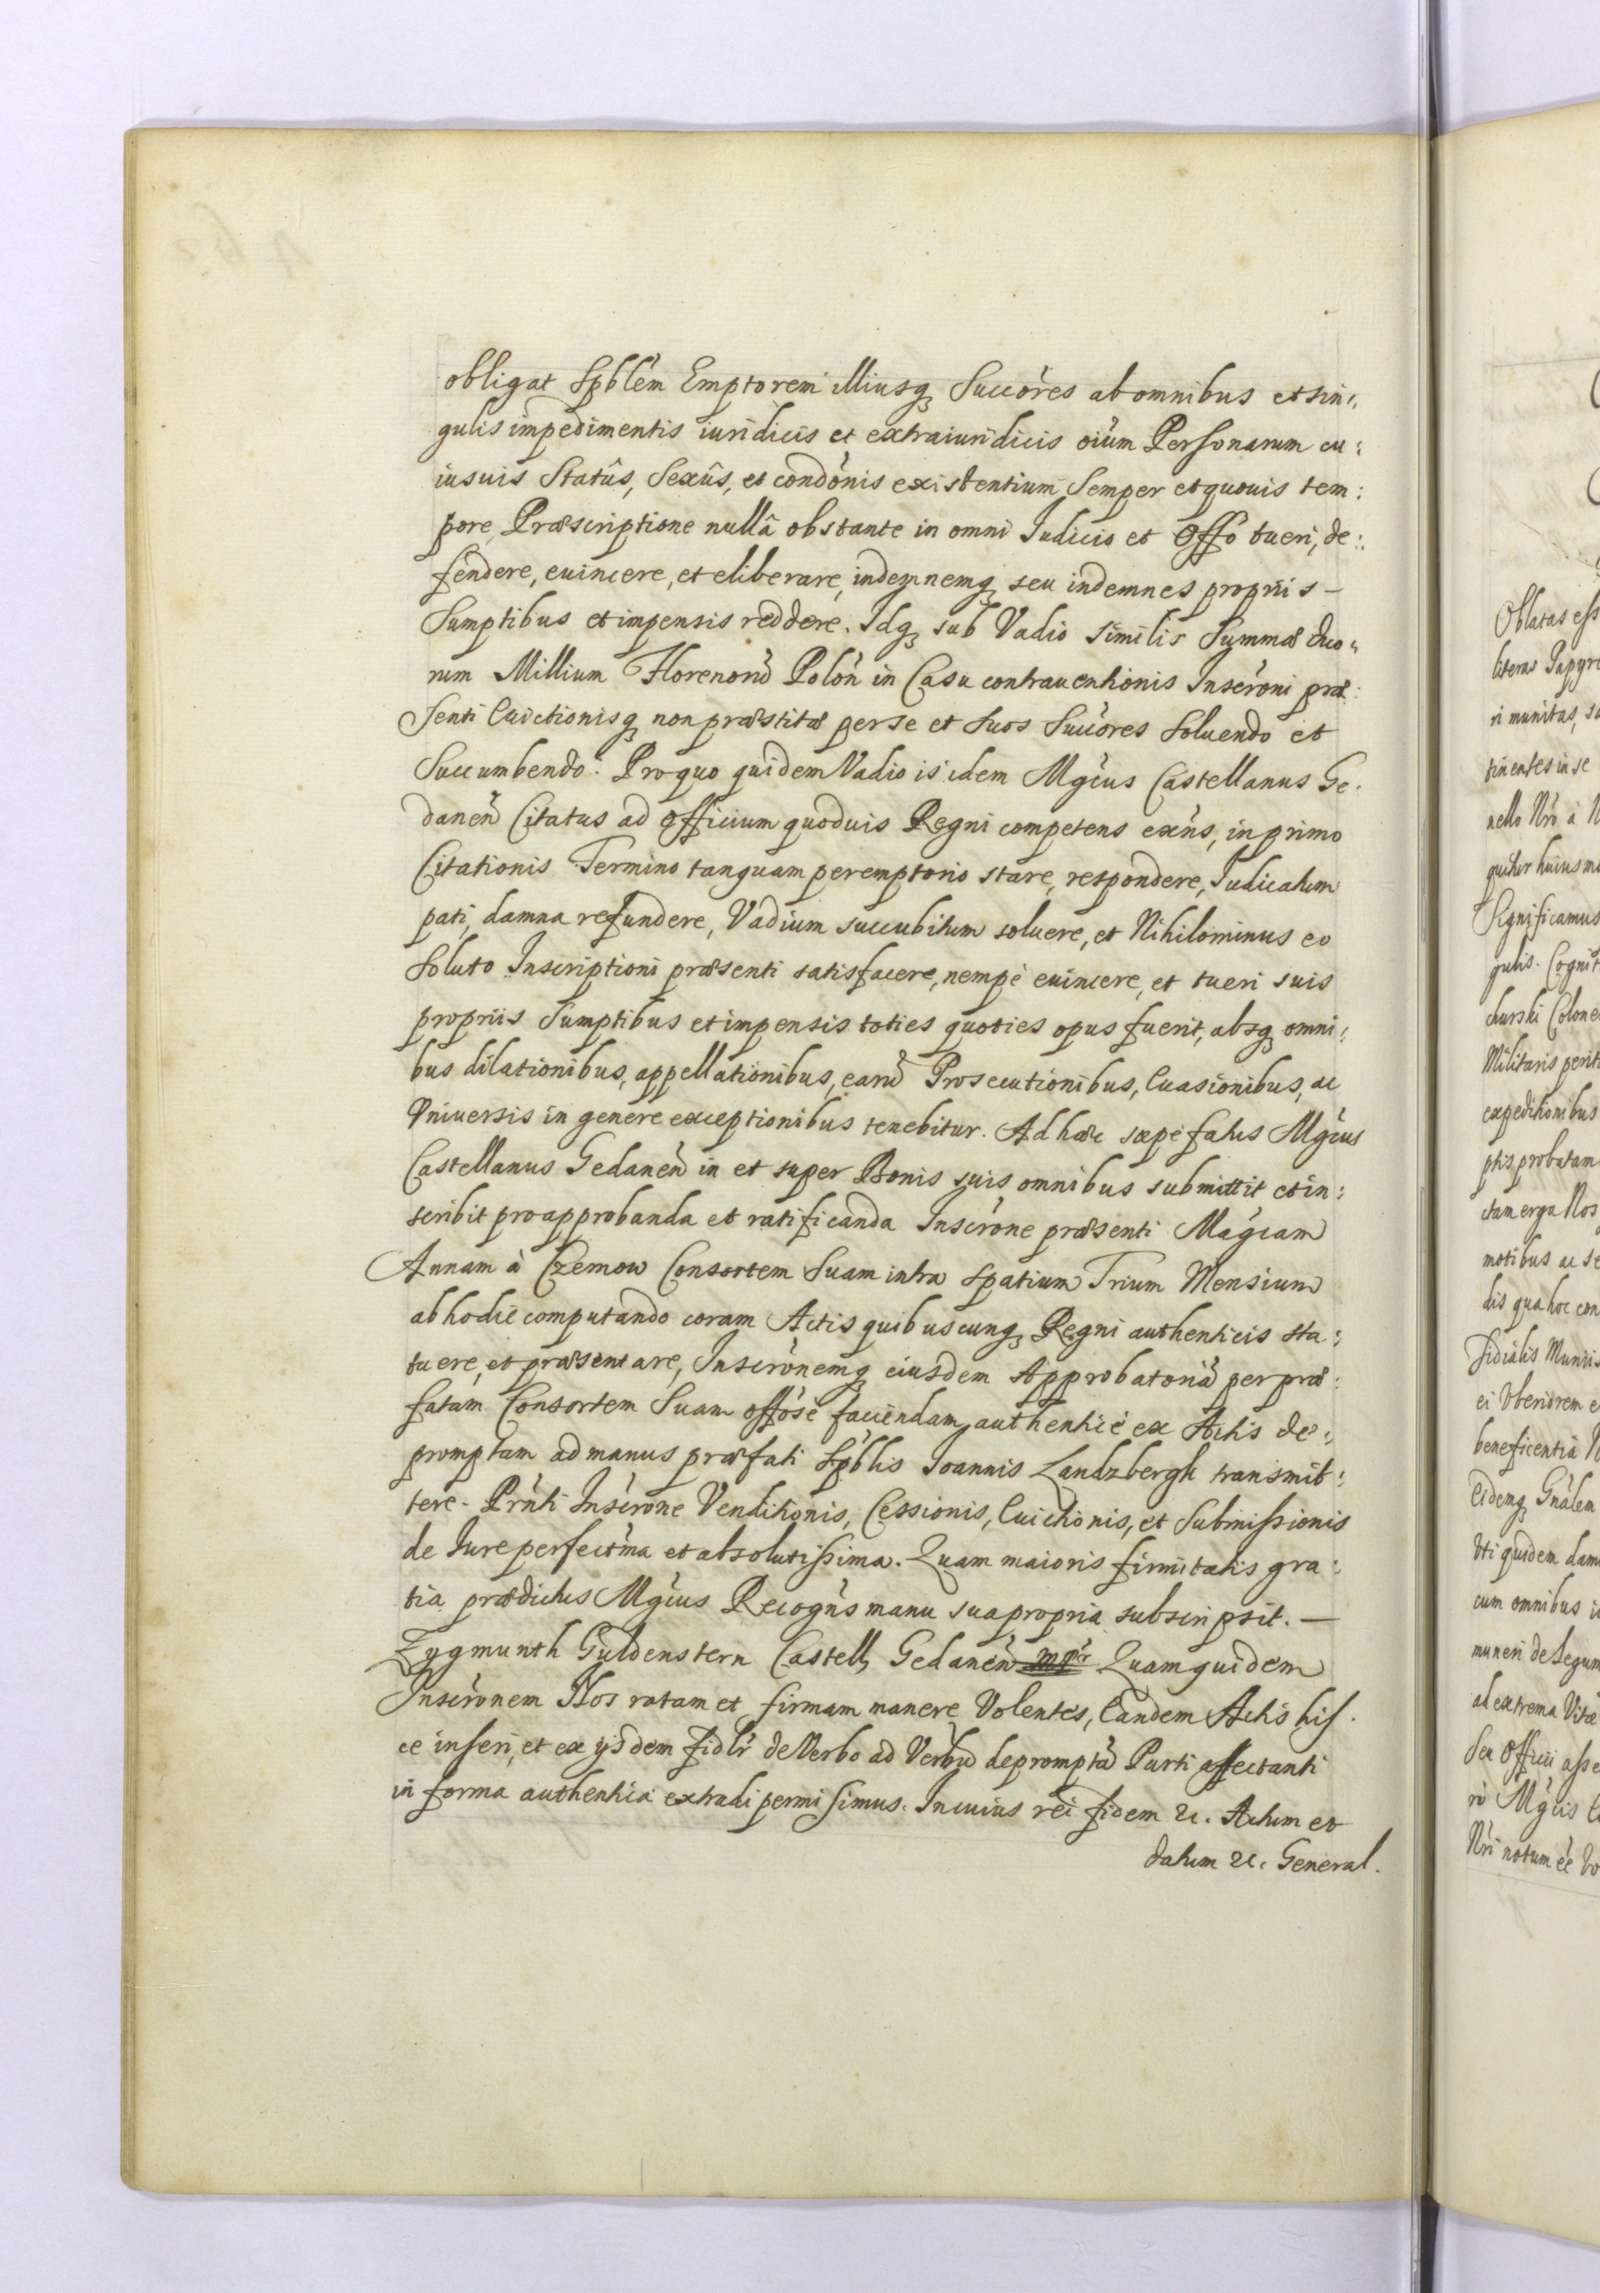 obligat Spblem Emptorem illiusq Succores ab omnibus et sin:
gulis impedimentis iuridicis et extraiuridicis oium Personarum cu:
iusuis Statûs, Sexûs, et condonis existentium Semper et quouis tem:
pore, Præscriptione nullâ obstante in omni Judicio et Offo tueri, de:
fendere, euincere, et eliberare, indemnemq seu indemnes proprijs –
Sumptibus et impensis reddere. Idq sub Vadio similis Summæ duo:
rum Millium Florenorũ Polon in Casu contrauentionis Inscroni præ:
senti Euictionisq non præstitæ per se et suos Succores soluendo et
Succumbendo. Pro quo quidem Vadio is idem Mgcus Castellanus Ge:
danen Citatus ad Officium quoduis Regni competens exns, in primo
Citationis Termino tanquam peremptorio stare, respondere, Judicatum
pati, damna refundere, Vadium succubitum soluere, et Nihilominus eo
Soluto Inscriptioni præsenti satisfacere, nempè euincere, et tueri suis
propriis Sumptibus et impensis toties quoties opus fuerit, absq omni:
bus dilationibus, appellationibus, earũ Prosecutionibus, Euasionibus, ac
Vniuersis in genere exceptionibus tenebitur. Ad hæc sæpefatus Mgcus
Castellanus Gedanen in et super Bonis suis omnibus submittit et in:
scribit pro approbanda et ratificanda Inscrone præsenti Magcam
Annam à Czemow Consortem Suam intra Spatium Trium Mensium
ab hodie computando coram Actis quibuscunq Regni authenticis sta:
tuere, et præsentare, Inscronemq eiusdem Approbatoriã per præ:
fatam Consortem Suam offose faciendam, authenticè ex Actis de:
promptam ad manus præfati Spblis Joannis Landzbergk transmit:
tere. Prnti Inscrone Venditionis, Cessionis, Euictionis, et Submissionis
de Jure perfectma et absolutissima. Quam maioris firmitatis gra:
tia prædictus Mgcus Recogns manu sua propria subscripsit. –
Zygmunth Guldenstern Castell Gedanen mpr Quam quidem
Inscronem Nos ratam et firmam manere Volentes, Eandem Actis his
ce inseri, et ex ijsdem fidlr de Verbo ad Verbũ depromptã Parti affectanti
in forma authentica extradi permisimus. In cuius rei fidem &c. Actum et
datum &c. General.